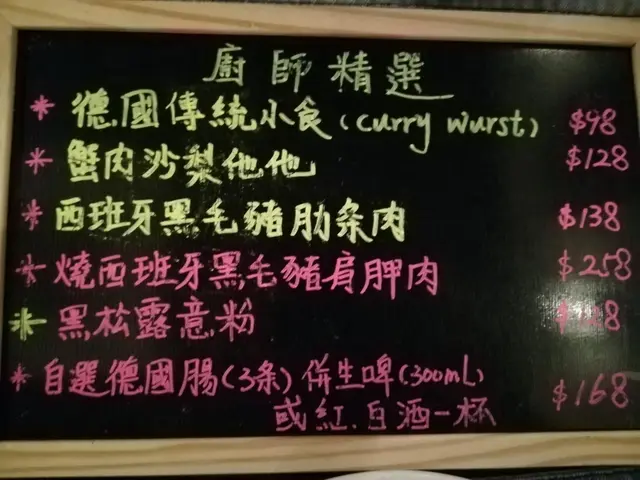 廚師精選
* 德國傳統小食(curry wurst) $98
* 蟹肉沙梨他他 $128
* 西班牙黑毛豬肋条肉 $138
* 燒西班牙黑毛豬肩胛肉 $258
* 黑松露意粉
* 自選德國腸(3条)併生啤(300mL)
或紅.白酒一杯 $168